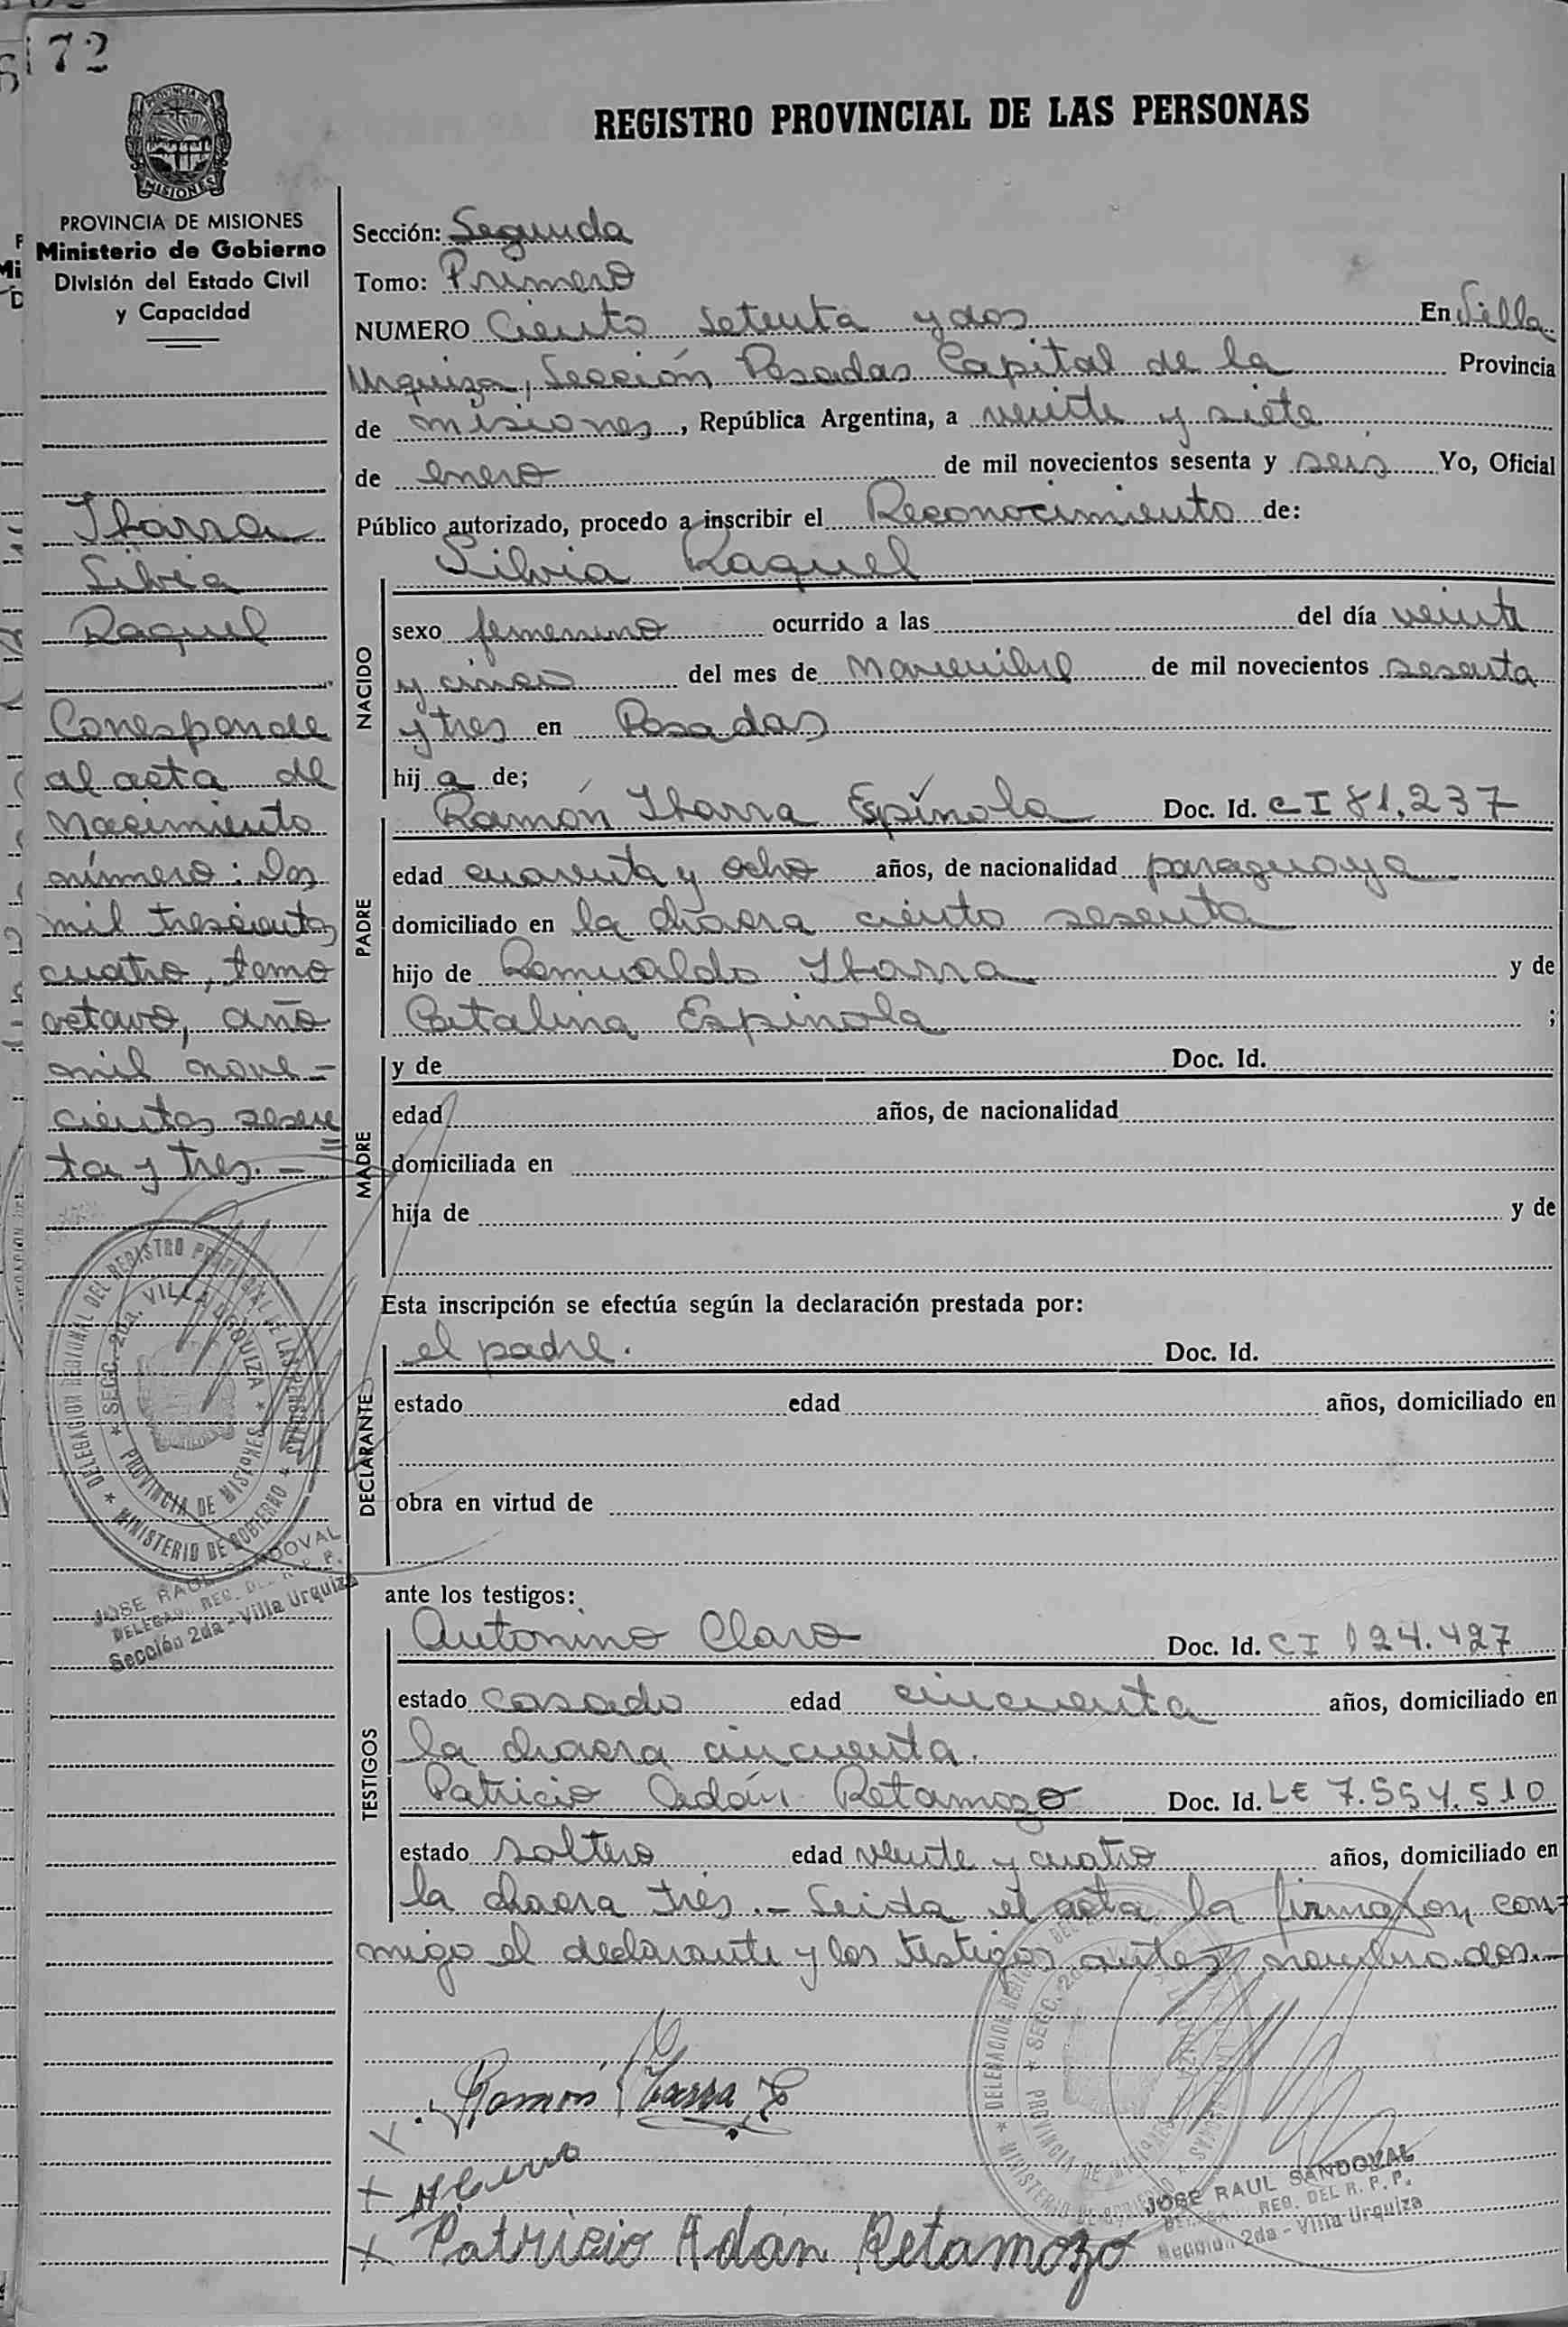 172
PROVINCIA DE MISIONES
PROVINCIA DE MISIONES
Ministerio de Gobierno
División del Estado Civil
y Capacidad
Ibarra
Silvia
Raquel
Corresponde
al acta de
nacimiento
número: Dos
mil trescientos
cuatro, tomo
octavo, año
mil nove-
cientos sesen
ta y tres.-
DELEGACION REGIONAL DEL REGISTRO PROVINCIAL DE LAS PERSONAS
* MINISTERIO DE GOBIERNO *
* SECC. 2da. VILLA URQUIZA *
PROVINCIA DE MISIONES
JOSE RAUL SANDOVAL
DELEGADO REG. DEL R. P. P.
Sección 2da - Villa Urquiza
REGISTRO PROVINCIAL DE LAS PERSONAS
Sección: Segunda
Tomo: Primero
NUMERO Ciento setenta y dos En Villa
Urquiza, Sección Posadas Capital de la Provincia
de misiones, República Argentina, a veinte y siete
de enero de mil novecientos sesenta y seis Yo, Oficial
Público autorizado, procedo a inscribir el Reconocimiento de:
Silvia Raquel
NACIDO
sexo femenino ocurrido a las del día veinte
y cinco del mes de noviembre de mil novecientos sesenta
y tres en Posadas
hij a de;
PADRE
Ramón Ibarra Espínola Doc. Id. CI 81.237
edad cuarenta y ocho años, de nacionalidad paraguaya
domiciliado en la chacra ciento sesenta
hijo de Romualdo Ibarra y de
Catalina Espinola ;
MADRE
y de Doc. Id.
edad años, de nacionalidad
domiciliada en
hija de y de
Esta inscripción se efectúa según la declaración prestada por:
DECLARANTE
el padre. Doc. Id.
estado edad años, domiciliado en
obra en virtud de
ante los testigos:
TESTIGOS
Antonino Claro Doc. Id. CI 124.427
estado casado edad cincuenta años, domiciliado en
la chacra cincuenta.
Patricio Adán Retamozo Doc. Id. LE 7.554.510
estado soltero edad veinte y cuatro años, domiciliado en
la chacra tres.- Leida el acta la firmaron con-
migo el declarante y los testigos antes nombrados.-
Ramón Ibarra E
Patricio Adán Retamozo
DELEGACION REGIONAL DEL
* MINISTERIO DE GOBIERNO *
* SECC. 2da. VILLA URQUIZA
PROVINCIA DE MISIONES
JOSE RAUL SANDOVAL
DELEGADO REG. DEL R. P. P.
Sección 2da - Villa Urquiza